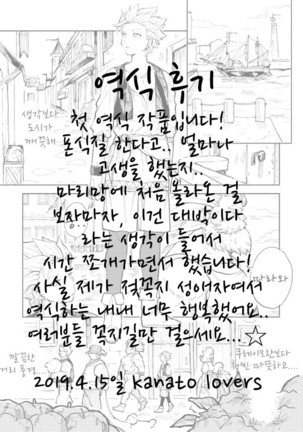 역식 후기
첫 역식 작품입니다!
폰식질 한다고.. 얼마나
고생을 했는지..
마리망에 처음 올라온 걸
보자마자, 이건 대박이다
라는 생각이 들어서
시간 쪼개가면서 했습니다!
사실 제가 젖꼭지 성애자여서
역식하는 내내 너무 행복했어요..
여러분들 꼭지길만 걸으세요...☆
2019.4.15일 kanato lovers
생각보다
도시가
깨끗해
따라와
깔끔한
거리 풍경